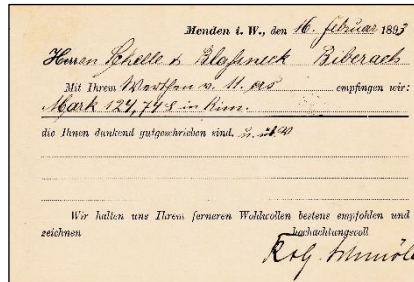 Menden i. W., den 16. Februar 1893
Herren Schelle & Blaßneck Biberach
Mit Ihrem Werthen v. 11. crs empfingen wir:
Mark 124,748 in Rim.
die Ihnen dankend gutgeschrieben sind.
Wir halten uns Ihrem ferneren Wohlwollen bestens empfohlen und
zeichnen hochachtungsvoll